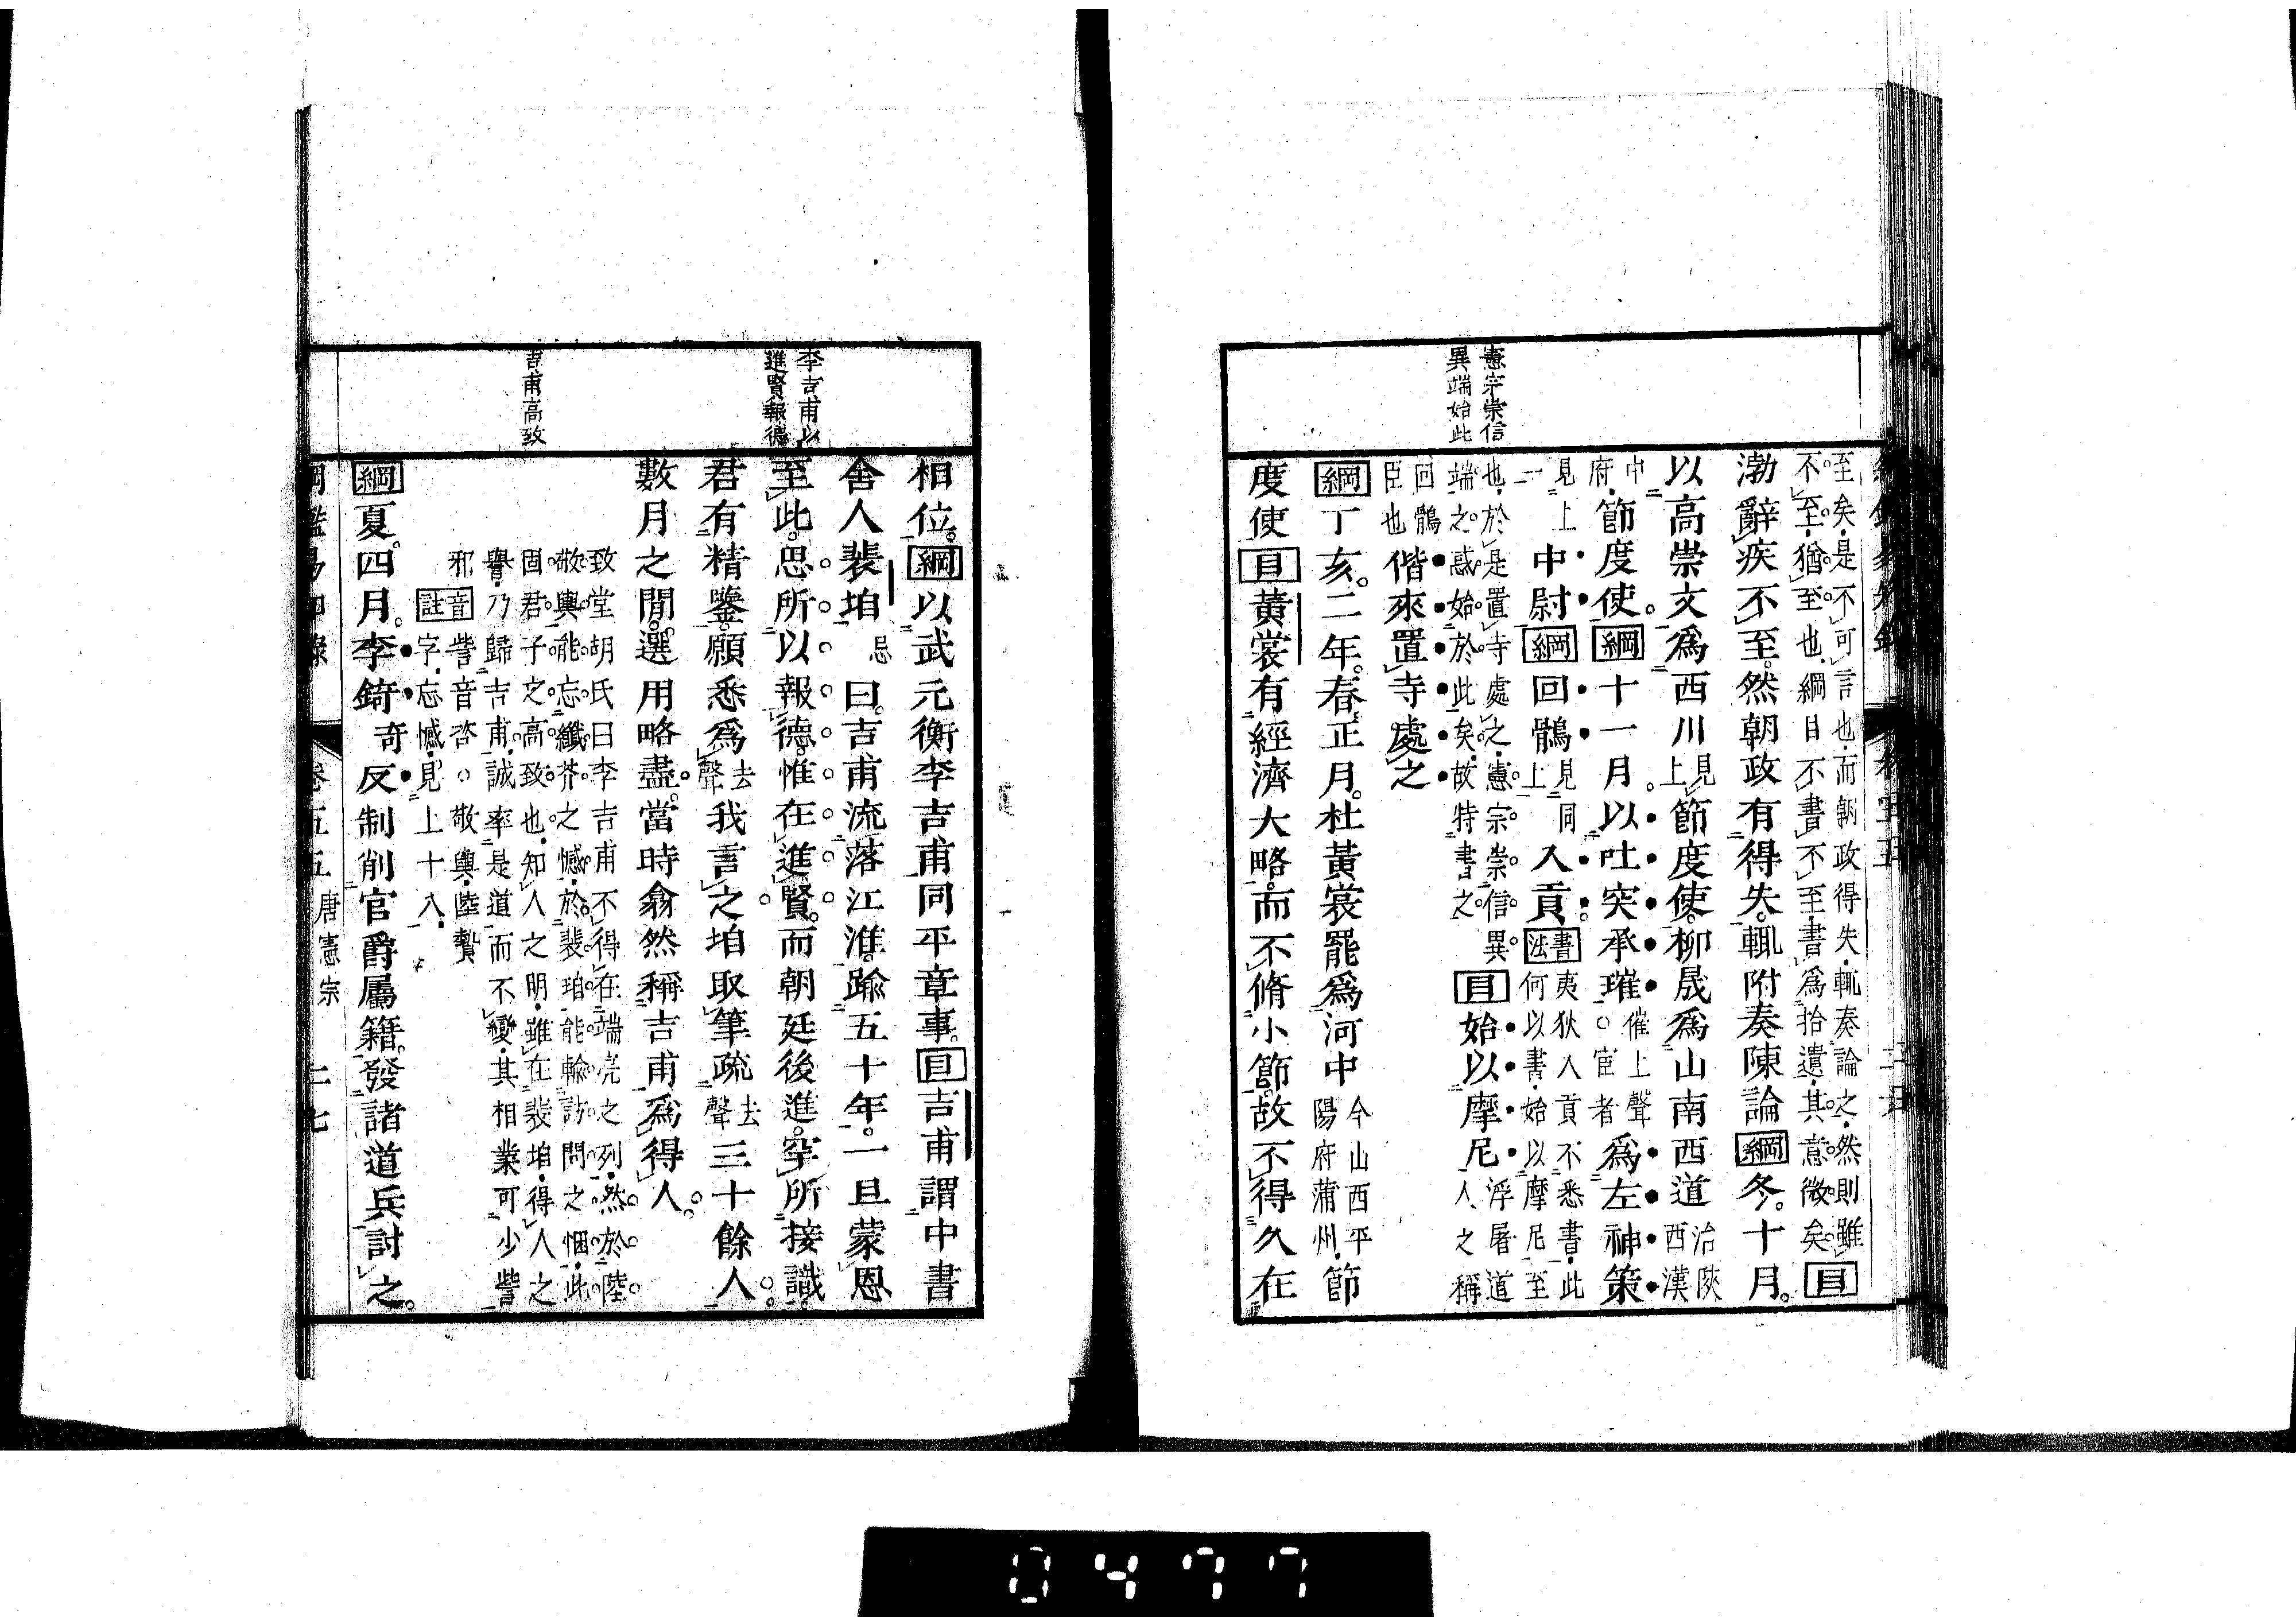 憲宗崇信
異端始此
至矣是不可言也而朝政得失輒奏論之然則雖
不至猶至也綱目不書不至書爲拾遺其意微矣目
渤辭疾不至然朝政有得失輒附奏陳論綱冬十月
以高崇文爲西川見上節度使柳晟爲山南西道治陝西漢
中府節度使綱十一月以吐突承璀催上聲○宦者爲左神策
見上一中尉綱回鶻見同上入貢書法夷狄入貢不悉書此何以書始以摩尼至
也於是置寺處之憲宗崇信異端之惑始於此矣故特書之目始以摩尼浮屠道人之稱
回鶻臣也偕來置寺處之
綱丁亥二年春正月杜黃裳罷爲河中今山西平陽府蒲州節
度使目黃裳有經濟大略而不脩小節故不得久在
李吉甫以
進賢報德
吉甫高致
相位綱以武元衡李吉甫同平章事目吉甫謂中書
舍人裴垍忌曰吉甫流落江淮踰五十年一旦蒙恩
至此思所以報德惟在進賢而朝廷後進罕所接識
君有精鑒願悉爲去聲我言之垍取筆疏去聲三十餘人
數月之閒選用略盡當時翕然稱吉甫爲得人
致堂胡氏曰李吉甫不得在端亮之列然於陸
敬輿能忘纖芥之憾於裴垍能輸訪問之悃此
固君子文高致也知人之明雖在裴垍得人之
譽乃歸吉甫誠率是道而不變其相業可少訾
邪
音註訾音咨○敬輿陸贄字忘憾見上十八
綱夏四月李錡奇反制削官爵屬籍發諸道兵討之
綱鑑易知錄 卷五五 唐憲宗 二七
0477